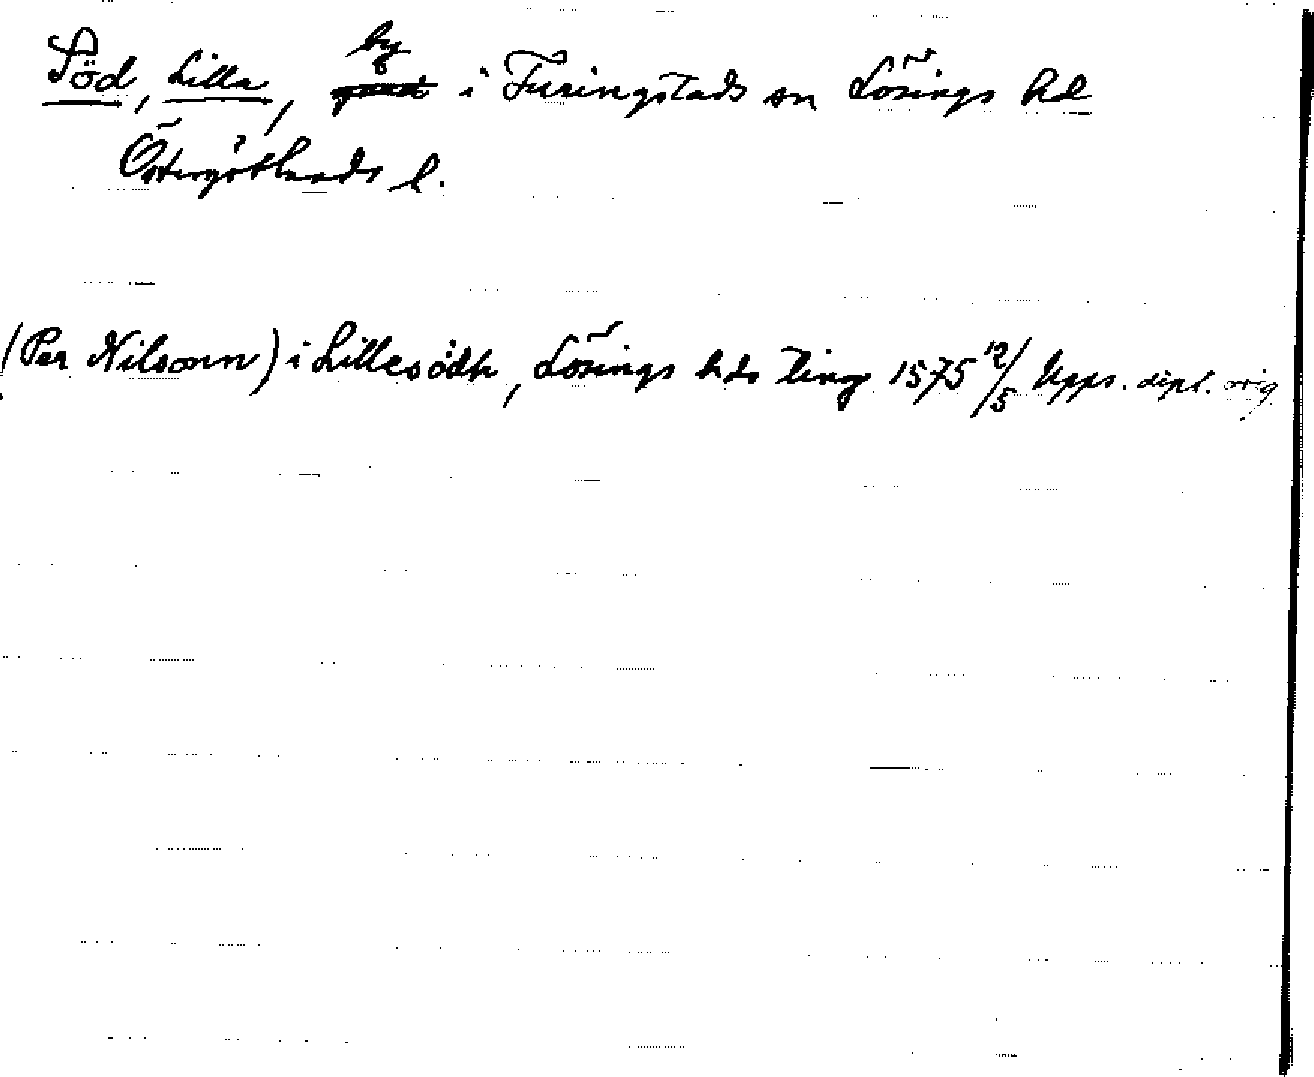 Söd, Lilla, by i Furingstads sn Lösings hd
Östergötlands l.
(Per Nilsonn) i Lillesödh, Lösings hds ting 1575 12/5 Upps. dipl. orig.